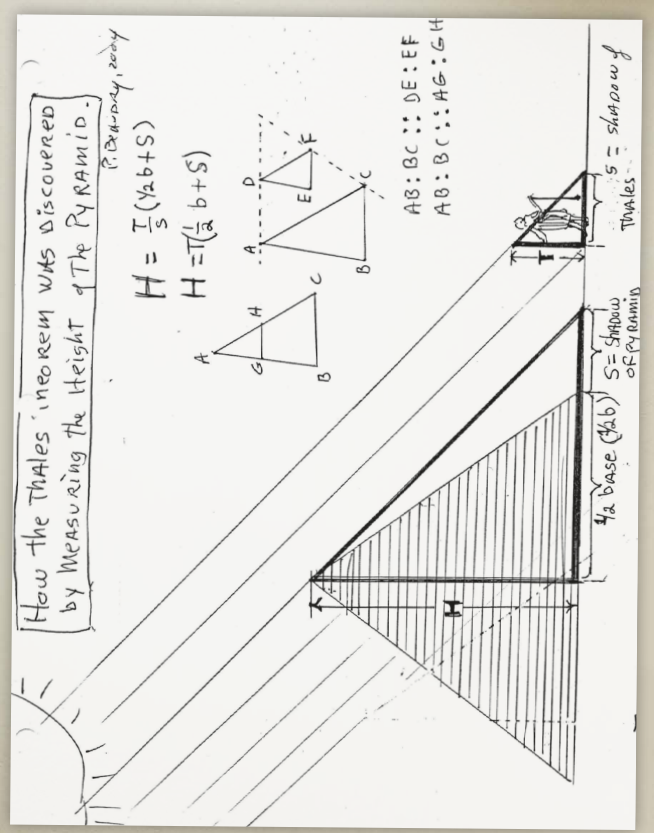 How the THAles Theorem WAS Discovered
by MeAsuring the Height of The PyRAmid.
P. BeAudry, 2004
H = T/S (1/2b+S)
H = T(1/2 b+S)
A
H
G
B
C
A
D
E
F
B
C
AB:BC :: DE:EF
AB:BC :: AG:GH
H
T
1/2 bASe (1/2b)
S = ShADow
of PyRAmid
S = ShADow of
THAles